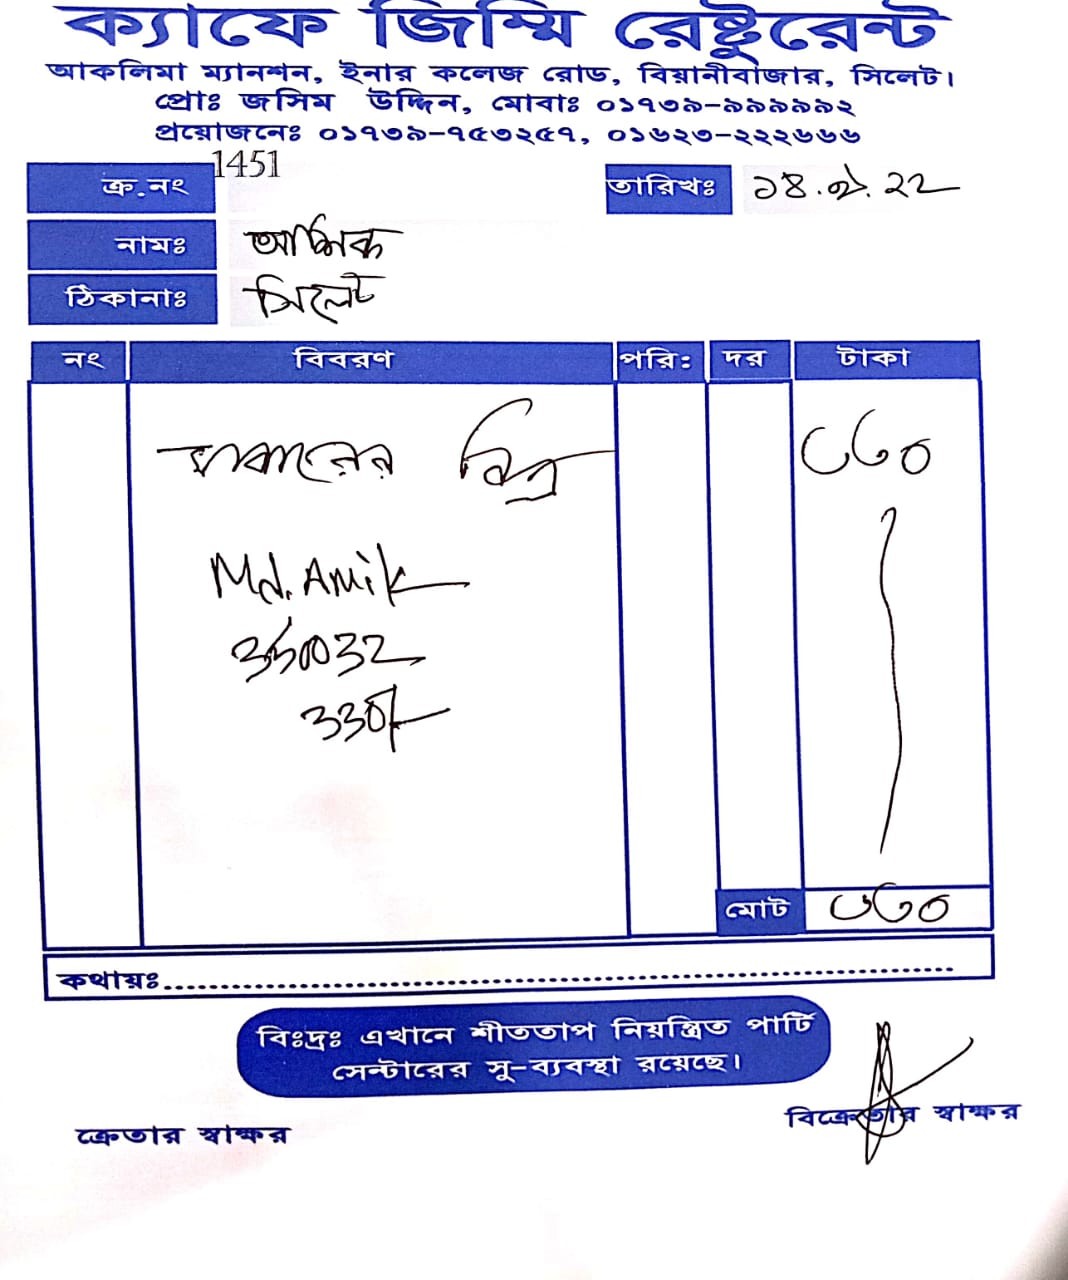 ক্যাফে জিম্মি রেষ্টুরেন্ট
আকলিমা ম্যানশন, ইনার কলেজ রোড, বিয়ানীবাজার, সিলেট।
প্রোঃ জসিম উদ্দিন, মোবাঃ ০১৭৩৯-৯৯৯৯৯২
প্রয়োজনেঃ ০১৭৩৯-৭৫৩২৫৭, ০১৬২৩-২২২৬৬৬
ক্র.নং 1451 তারিখঃ
নামঃ
ঠিকানাঃ সিলেট
নং বিবরণ পরি: দর টাকা
খাবারের বিল ৩৩০
Md. Amik
330/-
মোট ৩৩০
কথায়ঃ
বিঃদ্রঃ এখানে শীততাপ নিয়ন্ত্রিত পার্টি
সেন্টারের সু-ব্যবস্থা রয়েছে।
ক্রেতার স্বাক্ষর বিক্রেতার স্বাক্ষর